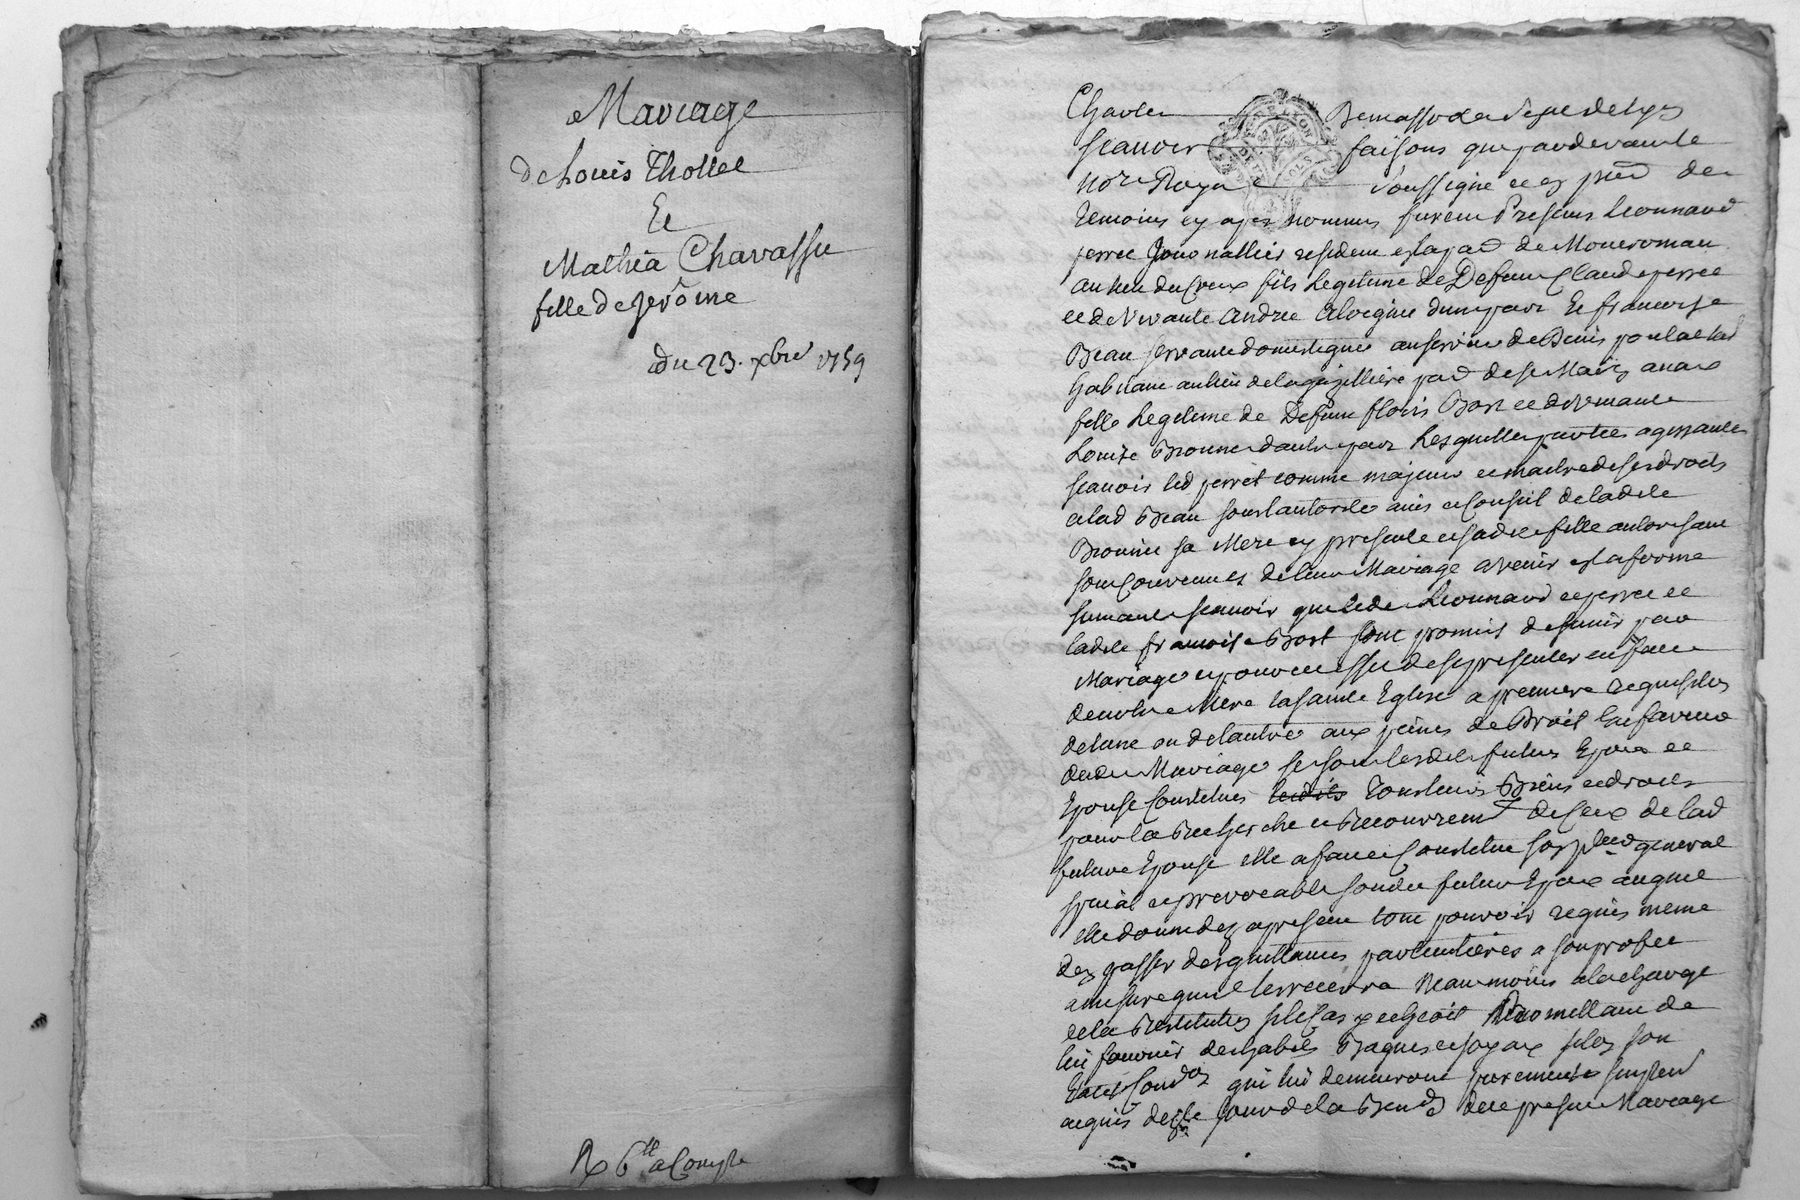 Mariage
de Louis Thollet
Et
Mathia Chavassu
fille de Jerôme
du 23. xbre 1759
R 6 ll a Compte
Charles
scavoir faisons que pardevant le
Nore Royal soussigné et en pnce des
temoins cy apres nommés furent Presens Leonnard
perret Journallier resident en la par de Montromant
au lieu du Creux fils Legitime de Defunt Claude perret
et de Vivante Andree d'une part Et francoise
servante domestique au service de Denis
habitant au lieu de par de St
fille Legitime de Defunt Bost et de Vivante
Louise d'autre part Lesquelles parties agissantes
scavoir led perret comme majeur et maitre de ses droits
et lad sous l'autorité avis et Conseil de ladte
sa Mere cy presente et sadte fille autorisant
sont Convenues de leur Mariage avenir en la forme
suivante scavoir que ledt Leonnard perret et
ladte francoise Bost sont promis de s'unir par
Mariage et pour cet effet de se presenter en face
de notre Mere la sainte Eglise a premiere requisition
de l'une ou de l'autre aux peines de Droit En faveur
dudt Mariage se sont lesdits futurs Epoux et
Epouse Constitués tous leurs Biens et droits
pour la Recherche et Recouvremt de Ceux de lad
future Epouse elle a fait et Constitué son general
special et irrevocable sondit futur Epoux auquel
elle donne des a present tout pouvoir requis meme
d'en passer des quittances particulieres a son profit
a mesure qu'il les recevra Neanmoins a la charge
de la Restitution si le Cas y echeoit Promettant de
lui fournir des habits Bagues et joyaux selon son
Etat et Condon qui lui demeureront purement et simplemt
acquis des le jour de la Bened de ce present Mariage